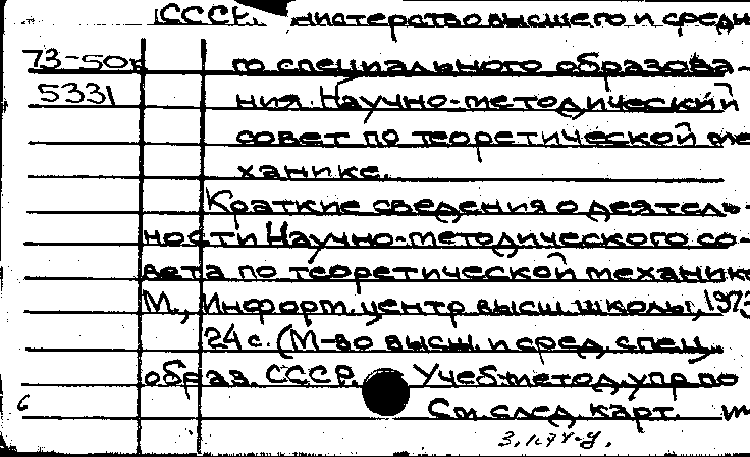 СССР. Министерство высшего и средне-
73-50к го специального образова-
5331 ния. Научно-методический
совет по теоретической ме-
ханике.
Краткие сведения о деятель-
ности Научно-методического со-
вета по теоретической механике
М., Информ. центр высш. школы, 1973
24 с. (М-во высш. и сред. спец.
образ. СССР. Учеб.-метод. упр. по
6 См. след. карт.